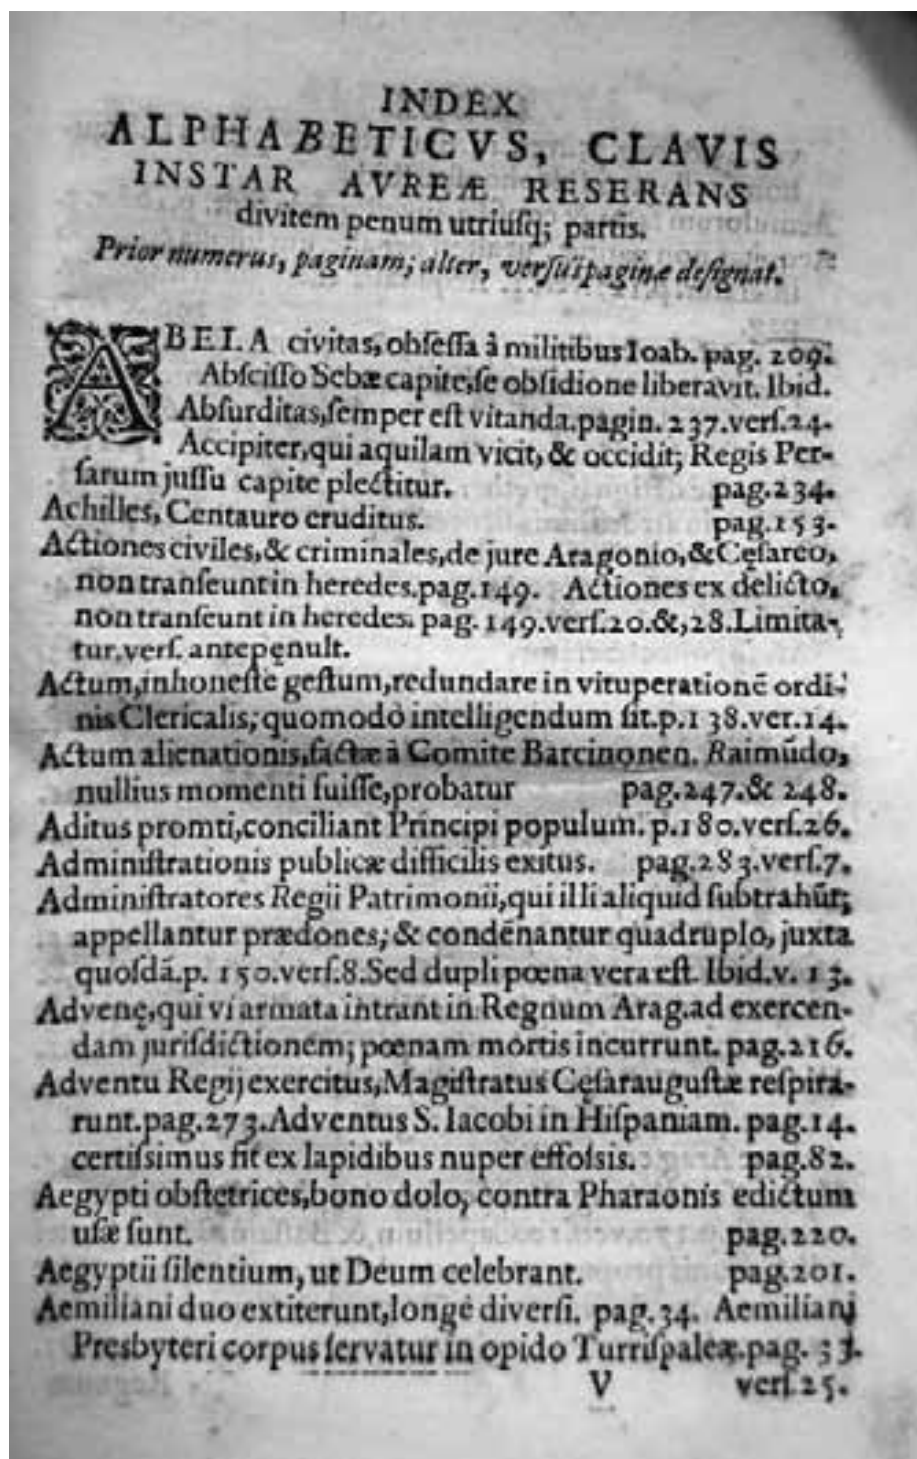 INDEX
ALPHABETICVS, CLAVIS
INSTAR AVREÆ RESERANS
divitem penum utriusq; partis.
Prior numerus, paginam; alter, versũ paginæ designat.
ABELA civitas, obsessa à militibus Ioab. pag. 209.
Abscisso Sebæ capite, se obsidione liberavit. Ibid.
Absurditas, semper est vitanda. pagin. 237. vers. 24.
Accipiter, qui aquilam vicit, & occidit; Regis Per-
sarum jussu capite plectitur. pag. 234.
Achilles, Centauro eruditus. pag. 153.
Actiones civiles, & criminales, de jure Aragonio, & Cęsareo,
non transeunt in heredes. pag. 149. Actiones ex delicto,
non transeunt in heredes. pag. 149. vers. 20. &, 28. Limita-
tur, vers. antepęnult.
Actum, inhoneste gestum, redundare in vituperationẽ ordi-
nis Clericalis, quomodò intelligendum sit. p. 138. ver. 14.
Actum alienationis, factæ à Comite Barcinonen. Raimũdo,
nullius momenti fuisse, probatur pag. 247. & 248.
Aditus promti, conciliant Principi populum. p. 180. vers. 26.
Administrationis publicæ difficilis exitus. pag. 283. vers. 7.
Administratores Regii Patrimonii, qui illi aliquid subtrahũt;
appellantur prædones; & condẽnantur quadruplo, juxta
quosdã. p. 150. vers. 8. Sed dupli pœna vera est. Ibid. v. 13.
Advenę, qui vi armata intrant in Regnum Arag. ad exercen-
dam jurisdictionem; pœnam mortis incurrunt. pag. 216.
Adventu Regij exercitus, Magistratus Cęsaraugustæ respira-
runt. pag. 273. Adventus S. Iacobi in Hispaniam. pag. 14.
certissimus fit ex lapidibus nuper effossis. pag. 82.
Aegypti obstetrices, bono dolo, contra Pharaonis edictum
usæ sunt. pag. 220.
Aegyptii silentium, ut Deum celebrant. pag. 201.
Aemiliani duo extiterunt, longè diversi. pag. 34. Aemiliani
Presbyteri corpus servatur in opido Turrispaleæ. pag. 33.
V vers. 25.